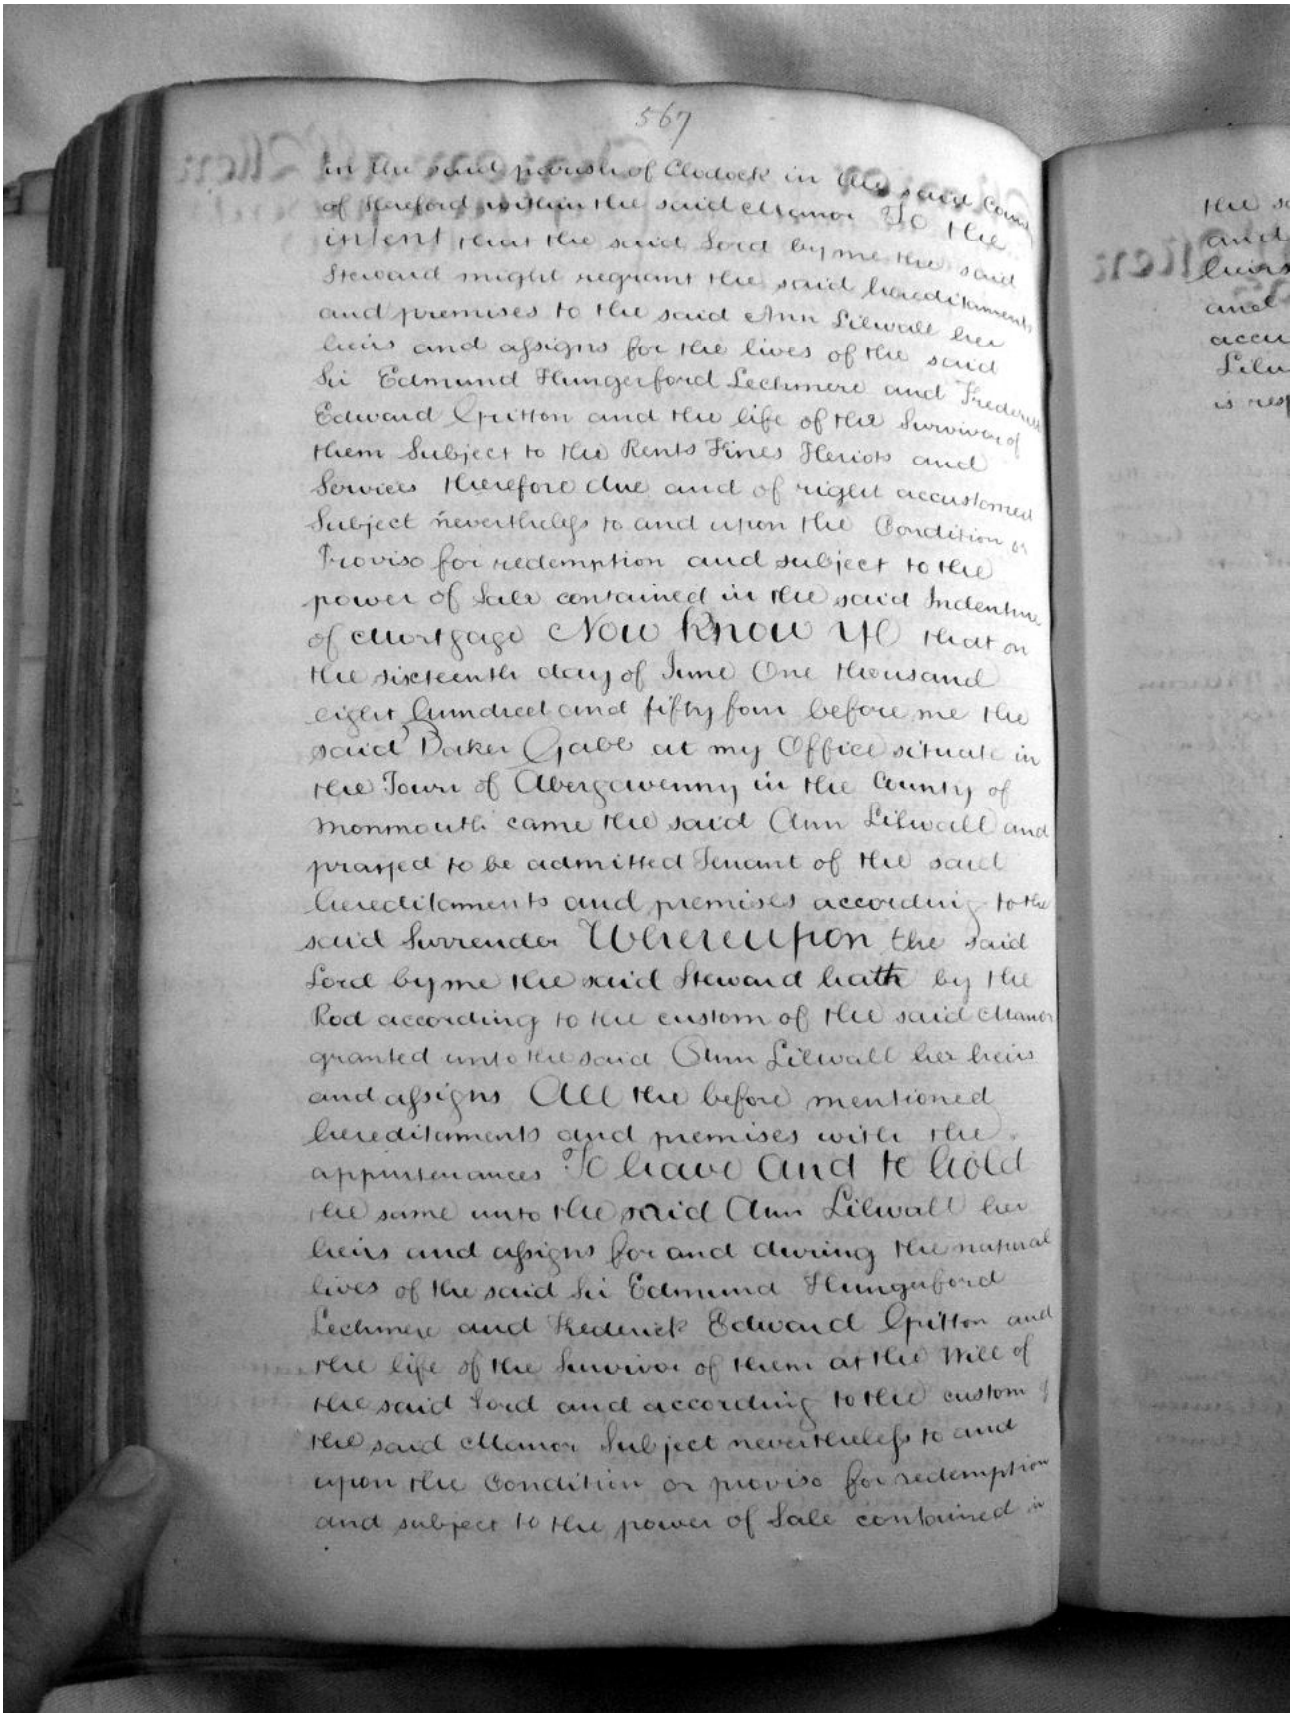 567
in the said parish of Clodock in the said County
of Hereford within the said Manor To the
intent that the said Lord by me the said
Steward might regrant the said hereditaments
and premises to the said Ann Lilwall her
heirs and assigns for the lives of the said
Sir Edmund Hungerford Lechmere and Frederick
Edward Gritton and the life of the Survivor of
them Subject to the Rents Fines Heriots and
Services therefore due and of right accustomed
Subject nevertheless to and upon the Condition or
Proviso for redemption and subject to the
power of Sale contained in the said Indenture
of Mortgage Now Know Ye that on
the sixteenth day of June One thousand
eight hundred and fifty four before me the
said Baker Gabb at my Office situate in
the Town of Abergavenny in the County of
Monmouth came the said Ann Lilwall and
prayed to be admitted Tenant of the said
hereditaments and premises according to the
said Surrender Whereupon the said
Lord by me the said Steward hath by the
Rod according to the custom of the said Manor
granted unto the said Ann Lilwall her heirs
and assigns All the before mentioned
hereditaments and premises with the
appurtenances To have and to hold
the same unto the said Ann Lilwall her
heirs and assigns for and during the natural
lives of the said Sir Edmund Hungerford
Lechmere and Frederick Edward Gritton and
the life of the Survivor of them at the Will of
the said Lord and according to the custom of
the said Manor Subject nevertheless to and
upon the Condition or proviso for redemption
and subject to the power of Sale contained in
and
heirs
and